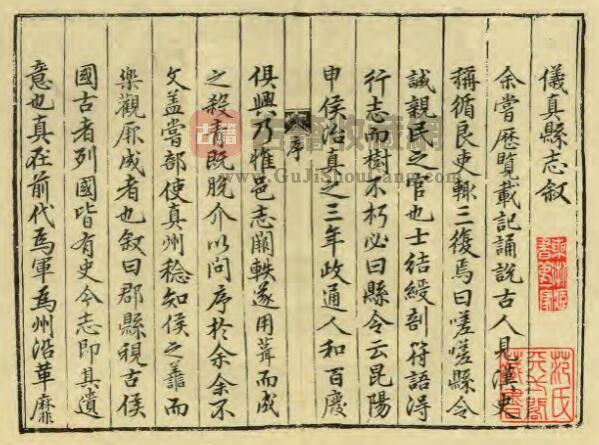 儀真縣志叙
余嘗歷覽載記誦說古人見漢史
稱循良吏輒三復焉曰嗟嗟縣令
誠親民之官也士結綬剖符語得
行志而樹不朽必曰縣令云昆陽
申侯治真之三年政通人和百廢
序
俱興乃惟邑志闕軼遂用葺而成
之殺青既脫介以問序於余余不
文盖嘗部使真州稔知侯之而
樂觀厥成者也叙曰郡縣視古侯
國古者列國皆有史今志即其遺
意也真在前代爲軍爲州沿革靡
范氏天一閣藏書
古籍收藏網
www.GuJiShouCang.com